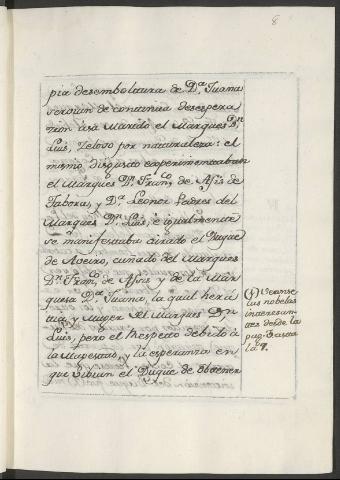 8
pia desemboltura de D.ª Juana
servian de continua desespera
zion à su Marido el Marques D.n
Luis, Zeloso por naturaleza: el
mismo disgusto experimentaban
el Marques D.n Fran.co de Asis de
Tabora, y D.ª Leonor Padres del
Marques D.n Luis, è igualmente
se manifestaba airado el Duque
de Aveiro, cuñado del Marques
D.n Fran.co de Asis y de la Mar
quesa D.ª Juana, la qual hera
tia, y Muger del Marques D.n
Luis, pero el Respeto debido à
la Magestad, y la esperanza en
que vibian el Duque de obtener
Veanse
las nobelas
interesan-
tes desde la
pag. 3 asta
la 9.